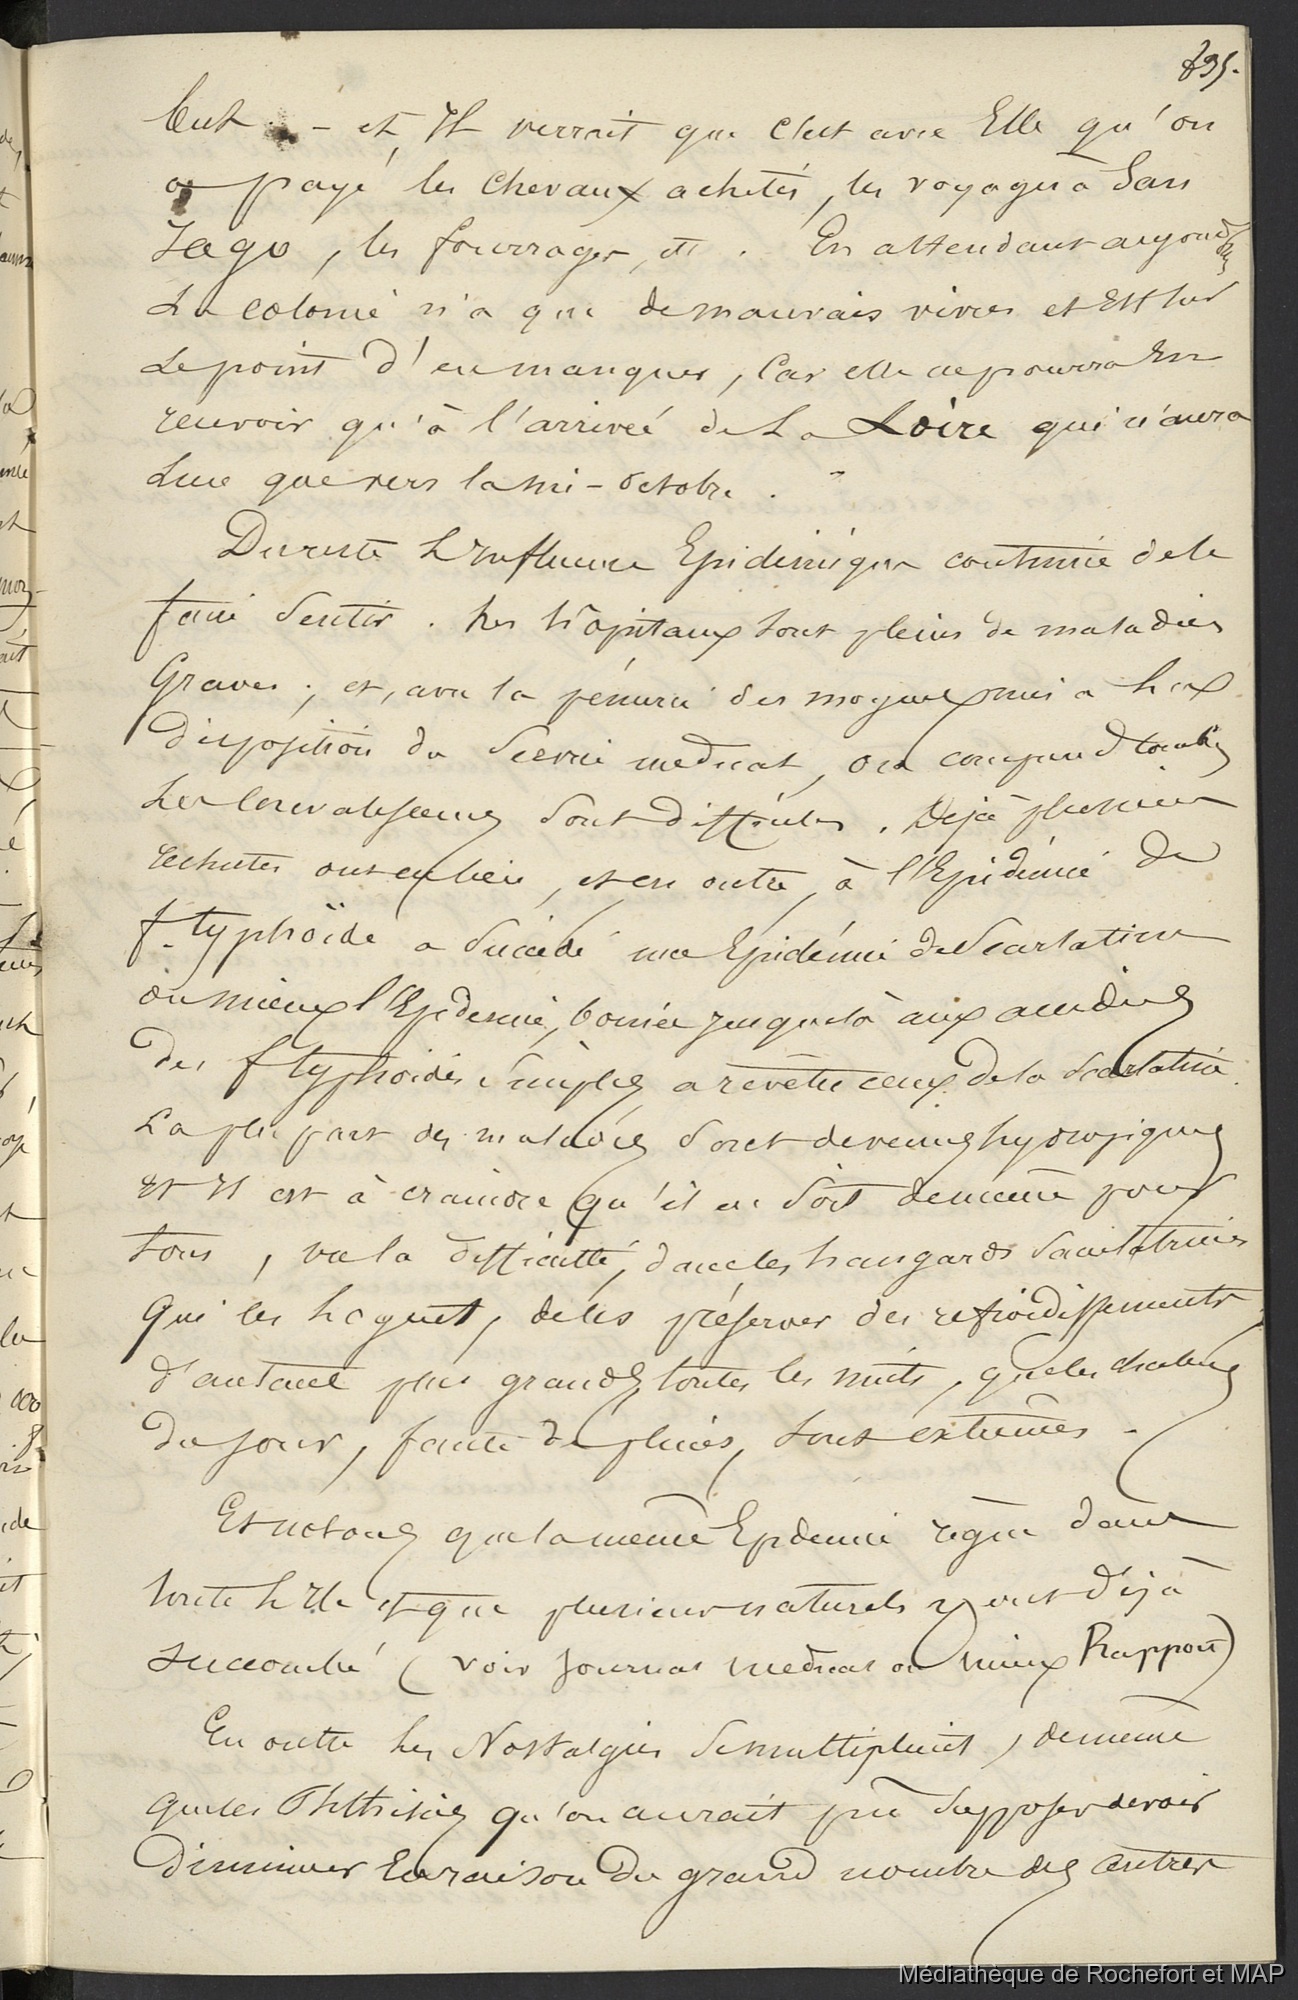 895.
but - et Il verrait que c'est avec Elle qu'on
a payé les chevaux achetés, les voyages à San
Iago, les fourrages, etc. En attendant aujourd'hui
La colonie n'a que de mauvais vivres et Est sur
Le point d'en manquer, Car elle ne pourra En
recevoir qu'à l'arrivée de La Loire qui n'aura
Lieu que vers la mi-octobre.
Du reste L'Influence Epidémique continue de se
faire Sentir. Les hôpitaux sont pleins de maladies
Graves; et, avec la pénurie des moyens mis à la
disposition du Service médical, on comprend combien
Les Convalescences Sont difficiles. Déjà plusieurs
rechutes ont eu lieu, et en outre, à l'Epidémie de
f. typhoïde a Succédé une Epidémie de Scarlatine
ou mieux l'Epidémie, bornée jusque là aux accidens
des f typhoïdes Simples a revêtu ceux de la Scarlatine.
La plupart des malades Sont devenus hydropiques
Et Il est à craindre qu'il en Soit de même pour
tous, vu la difficulté, dans les hangards
Qui les logent, de les préserver des refroidissements
d'autant plus grands, toutes les nuits, que les chaleurs
du jour, faute de pluies, sont extrêmes.
Et notons que la même Epidémie règne dans
toute L'Ile et que plusieurs naturels y ont déjà
succombé (voir Journal médical ou mieux Rapport)
En outre Les Nostalgies Se multiplient, de même
que les Phthisies qu'on aurait pu Supposer devoir
diminuer En raison du grand nombre des autres
Médiathèque de Rochefort et MAP